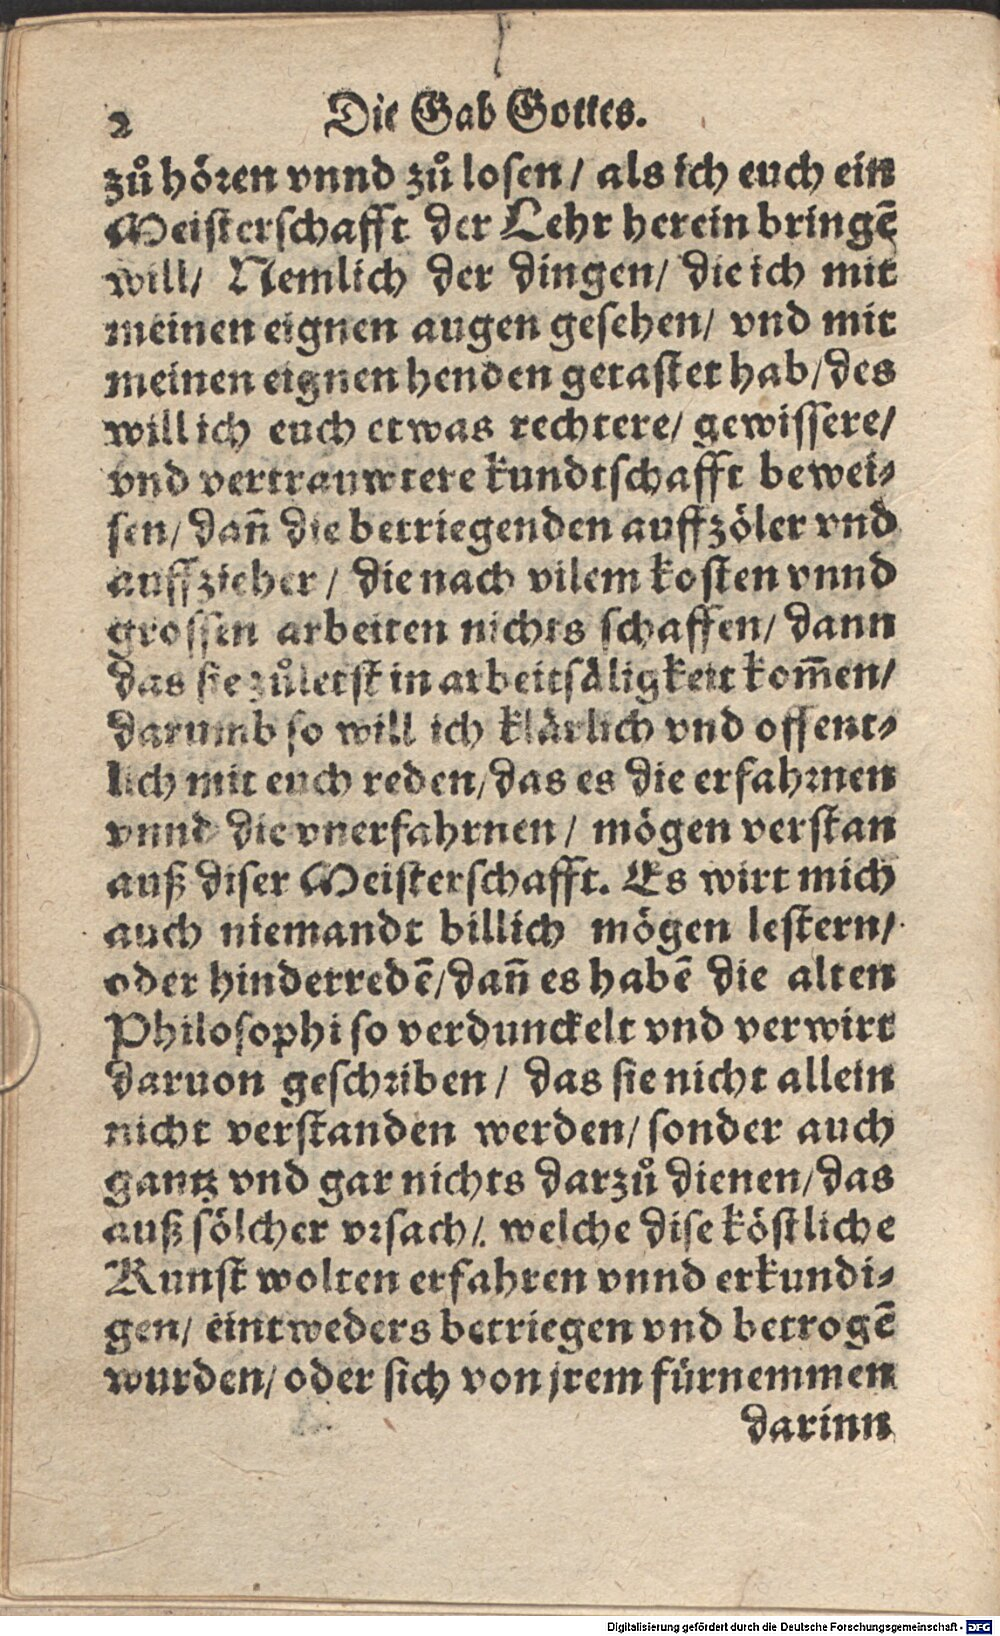 2 Die Gab Gottes.
zů hören vnnd zů losen / als ich euch ein
Meisterschafft der Lehr herein bringē
will / Nemlich der dingen / die ich mit
meinen eignen augen gesehen / vnd mit
meinen eignen henden getastet hab / des
will ich euch etwas rechtere / gewissere /
vnd vertrauwtere kundtschafft bewei-
sen / dañ die betriegenden auffzöler vnd
auffzieher / die nach vilem kosten vnnd
grossen arbeiten nichts schaffen / dann
das sie zůletst in arbeitsäligkeit kom̄en /
darumb so will ich klärlich vnd offent-
lich mit euch reden / das es die erfahrnen
vnnd die vnerfahrnen / mögen verstan
auß diser Meisterschafft. Es wirt mich
auch niemandt billich mögen lestern /
oder hinderredē / dañ es habē die alten
Philosophi so verdunckelt vnd verwirt
daruon geschriben / das sie nicht allein
nicht verstanden werden / sonder auch
gantz vnd gar nichts darzů dienen / das
auß sölcher vrsach / welche dise köstliche
Kunst wolten erfahren vnnd erkundi-
gen / eintweders betriegen vnd betrogē
wurden / oder sich von jrem fürnemmen
darinn
Digitalisierung gefördert durch die Deutsche Forschungsgemeinschaft - DFG